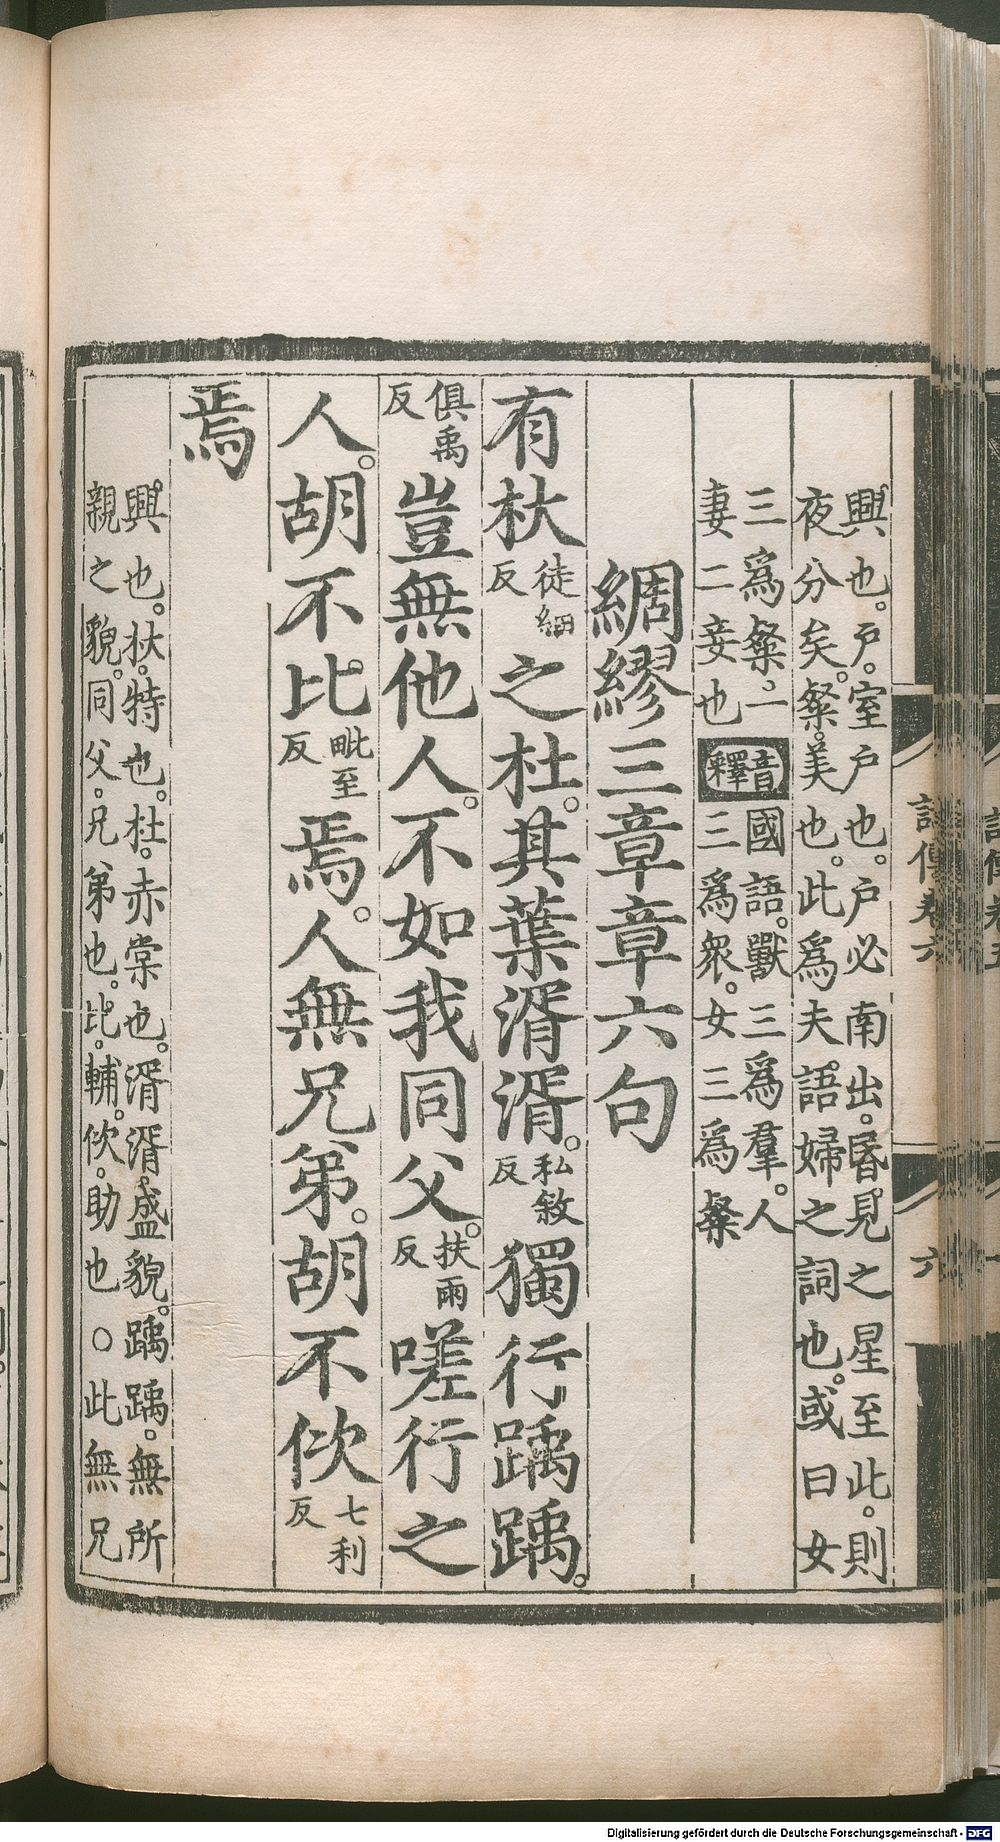 興也。戶。室戶也。戶必南出。昬見之星至此。則
夜分矣。粲。美也。此爲夫語婦之詞也。或曰女
三爲粲。一
妻二妾也
音釋
國語。獸三爲羣。人
三爲衆。女三爲粲
綢繆三章章六句
有杕徒細反之杜。其葉湑湑。私敘反獨行踽踽。
俱禹反豈無他人。不如我同父。扶雨反嗟行之
人。胡不比毗至反焉。人無兄弟。胡不佽七利反
焉
興也。杕。特也。杜。赤棠也。湑湑。盛貌。踽踽。無所
親之貌。同父。兄弟也。比。輔。佽。助也○此無兄
詩傳卷六
六
Digitalisierung gefördert durch die Deutsche Forschungsgemeinschaft - DFG